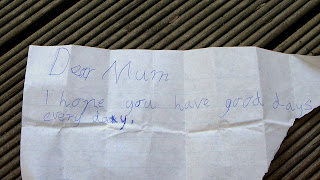 Dear Mum
I hope you have good days
every day.